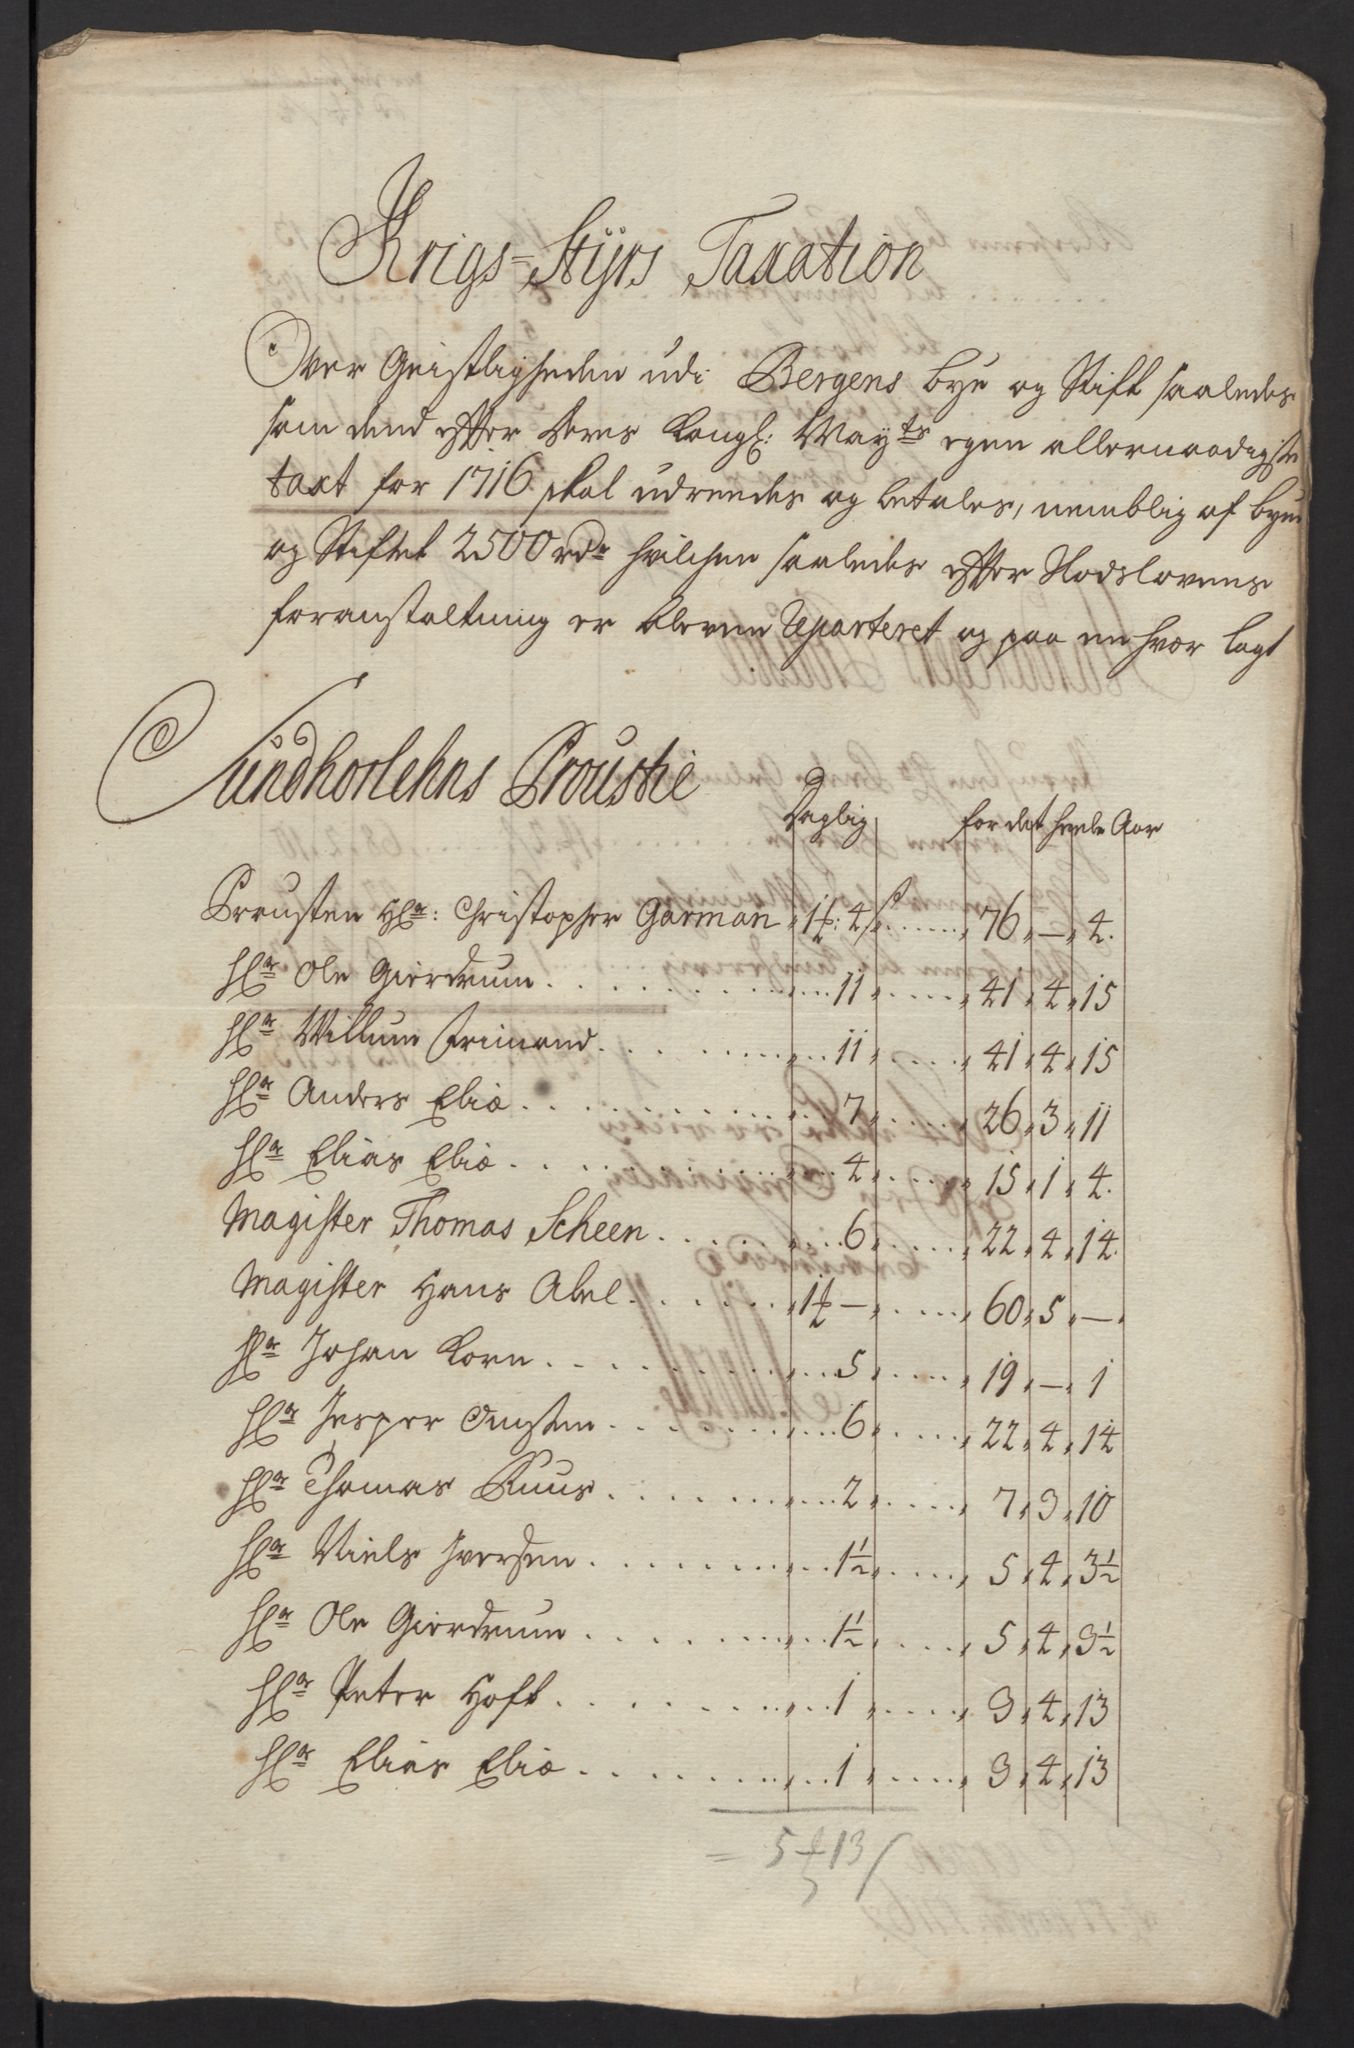 Krigs=Styrs Taxation
Over Geistligheden udi Bergens bye og Stift saaledes
som dend efter deres Kongl: Mayts egen allernaadigste
taxt for 1716 skal udreedes og betales, nemblig af byen
og Stiftet 2500 rdr hvilchen saaledes efter
foranstaltning er bleven Reparteret og paa en hver lagt
Sundhorlehns Proustie
Daglig for det heele Aar
Prousten Hr: Christopher Garman 1 : 4 s 76 — 4.
Hr Ole Giordrum 11 41 4 15
Hr Willum Frimand 11 41 4 15
Hr Anders Eliæ 7 26 3 11
Hr Elias Eliæ 4 15 1 4.
Magister Thomas Scheen 6 22 4 14.
Magister Hans Abel 1 — 60 5 —
Hr Johan Korn 5 19 — 1
Hr Jesper 6 22 4 14
Hr Thomas Ruus 2 7 3 10
Hr Niels Iversen 1½ 5 4 3½
Hr Ole Giordrum 1½ 5 4 3½
Hr Peter Hoft 1 3 4 13
Hr Elias Eliæ 1 3 4 13
= 5 13